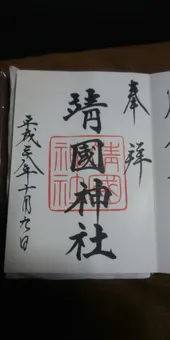 奉拝
靖國神社
平成二六年十一月九日
靖国神社